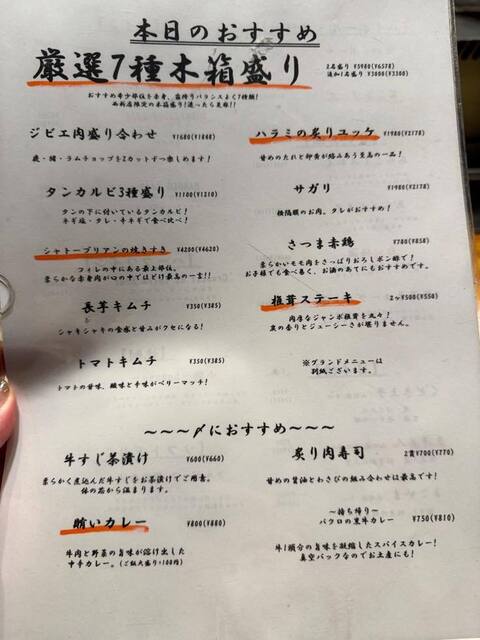 本日のおすすめ
厳選7種木箱盛り
2名盛り ¥5980(¥6578)
追加1名盛り ¥3000(¥3300)
おすすめ希少部位を赤身、霜降りバランスよく7種類!
西新店限定の木箱盛り!迷ったら是非!!
ジビエ肉盛り合わせ ¥1680(¥1848)
鹿・猪・ラムチョップを2カットずつ楽しめます!
ハラミの炙りユッケ ¥1980(¥2178)
甘めのたれと卵黄が絡みあう至高の一品!
タンカルビ3種盛り ¥1100(¥1210)
タンの下に付いているタンカルビ!
ネギ塩・タレ・辛ネギで食べ比べ!
サガリ ¥1980(¥2178)
横隔膜のお肉。タレがおすすめ!
シャトーブリアンの焼きすき ¥4200(¥4620)
フィレの中にある最上部位。
柔らかな赤身肉が口の中でほどけ最高の一言!!
さつま赤鶏 ¥780(¥858)
柔らかいモモ肉をさっぱりおろしポン酢で!
お子様でも食べ易く、お酒のあてにもおすすめです。
長芋キムチ ¥350(¥385)
シャキシャキの食感と甘みがクセになる!
椎茸ステーキ 2ヶ¥500(¥550)
肉厚なジャンボ椎茸を丸々!
炭の香りとジューシーさが堪りません。
トマトキムチ ¥350(¥385)
トマトの甘味、酸味と辛味がベリーマッチ!
※グランドメニューは
別紙ございます。
~~~〆におすすめ~~~
牛すじ茶漬け ¥600(¥660)
柔らかく煮込んだ牛すじをお茶漬けでご用意。
体の芯から温まります。
炙り肉寿司 2貫¥700(¥770)
甘めの醤油とわさびの組み合わせは最高です!
賄いカレー ¥800(¥880)
牛肉と野菜の旨味が溶け出した
中辛カレー。(ご飯大盛り+100円)
~持ち帰り~
バクロの黒牛カレー ¥750(¥810)
牛1頭分の旨味を凝縮したスパイスカレー!
真空パックなのでお土産にも!